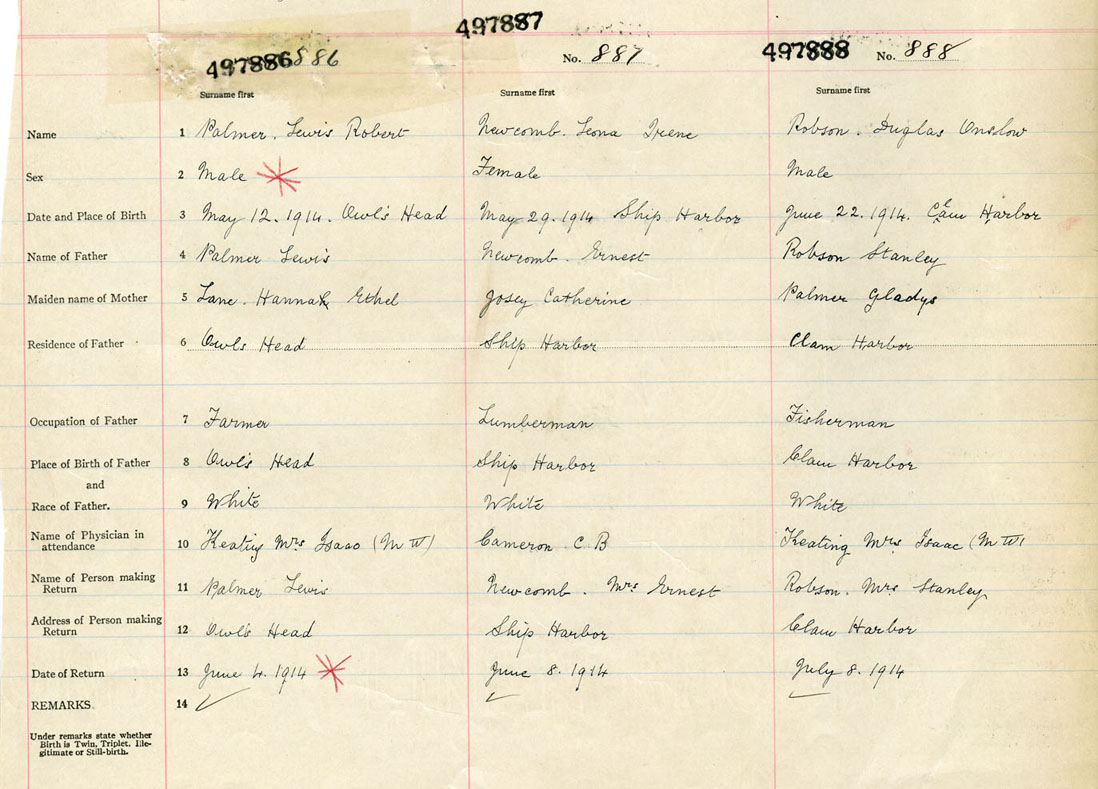 497886 886 497887 No. 887 497888 No. 888
Surname first Surname first Surname first
Name 1 Palmer. Lewis Robert Newcomb. Leona Irene Robson. Duglas Onslow
Sex 2 Male Female Male
Date and Place of Birth 3 May 12. 1914. Owl's Head May 29. 1914 Ship Harbor June 22. 1914. Clam Harbor
Name of Father 4 Palmer Lewis Newcomb. Ernest Robson Stanley
Maiden name of Mother 5 Lane. Hannah Ethel Josey Catherine Palmer Gladys
Residence of Father 6 Owls Head Ship Harbor Clam Harbor
Occupation of Father 7 Farmer Lumberman Fisherman
Place of Birth of Father 8 Owl's Head Ship Harbor Clam Harbor
and
Race of Father. 9 White White White
Name of Physician in
attendance 10 Keating Mrs Isaac (M W) Cameron. C. B Keating Mrs Isaac (M W)
Name of Person making
Return 11 Palmer Lewis Newcomb. Mrs Ernest Robson. Mrs Stanley
Address of Person making
Return 12 Owl's Head Ship Harbor Clam Harbor
Date of Return 13 June 4. 1914 June 8. 1914 July 8. 1914
REMARKS. 14
Under remarks state whether
Birth is Twin, Triplet, Ille-
gitimate or Still-birth.